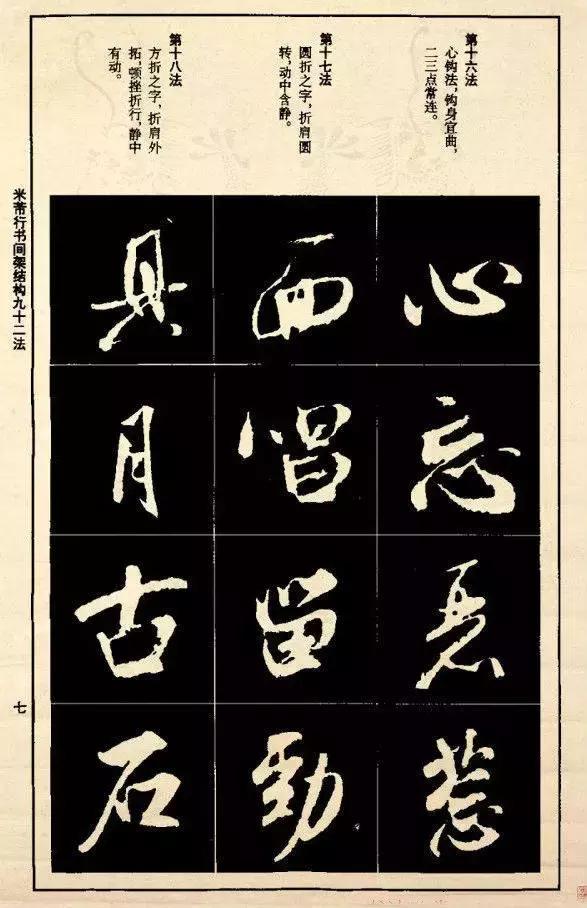 第十六法
心钩法，钩身宜曲，
二三点常连。
第十七法
圆折之字，折肩圆
转，动中含静。
第十八法
方折之字，折肩外
拓，顿挫折行，静中
有动。
心
忘
而
唱
留
劲
具
月
古
石
米芾行书间架结构九十二法
七